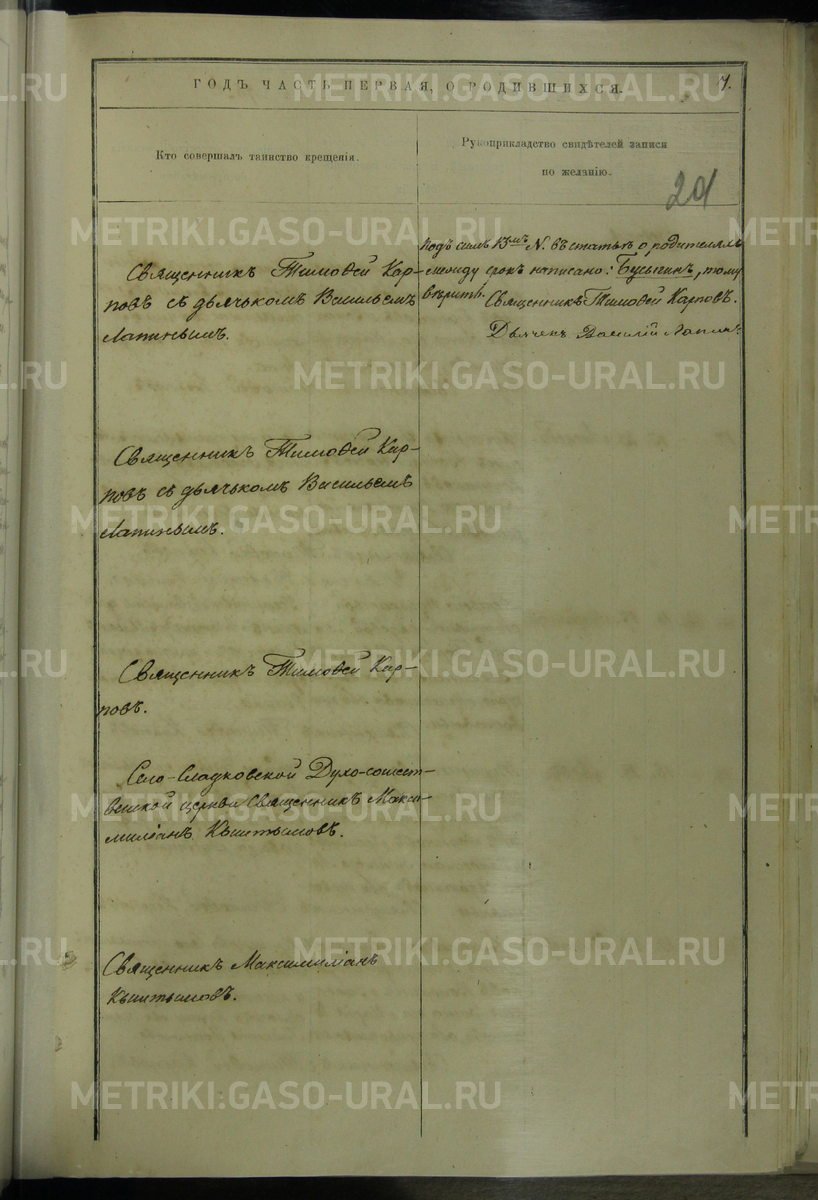 ГОДЪ ЧАСТЬ ПЕРВАЯ, О РОДИВШИХСЯ.
7.
Кто совершалъ таинство крещенія.
Рукоприкладство свидѣтелей записи
по желанію.
201
Священникъ Тимоѳей Кар-
повъ съ дьячькомъ Васильемъ
Лапинымъ.
Подъ симъ 13мъ N. въ статьѣ о родителяхъ
между срокъ написано: Бусыгинъ, тому
вѣрить. Священникъ Тимоѳей Карповъ.
Дьячекъ Василій Лапинъ
Священникъ Тимоѳей Кар-
повъ съ дьячькомъ Васильемъ
Лапинымъ.
Священникъ Тимоѳей Кар-
повъ.
Село-Сладковской Духо-сошест-
венской церкви Священникъ Макси-
миліанъ Кыштымовъ.
Священникъ Максимиліанъ
Кыштымовъ.
METRIKI.GASO-URAL.RU